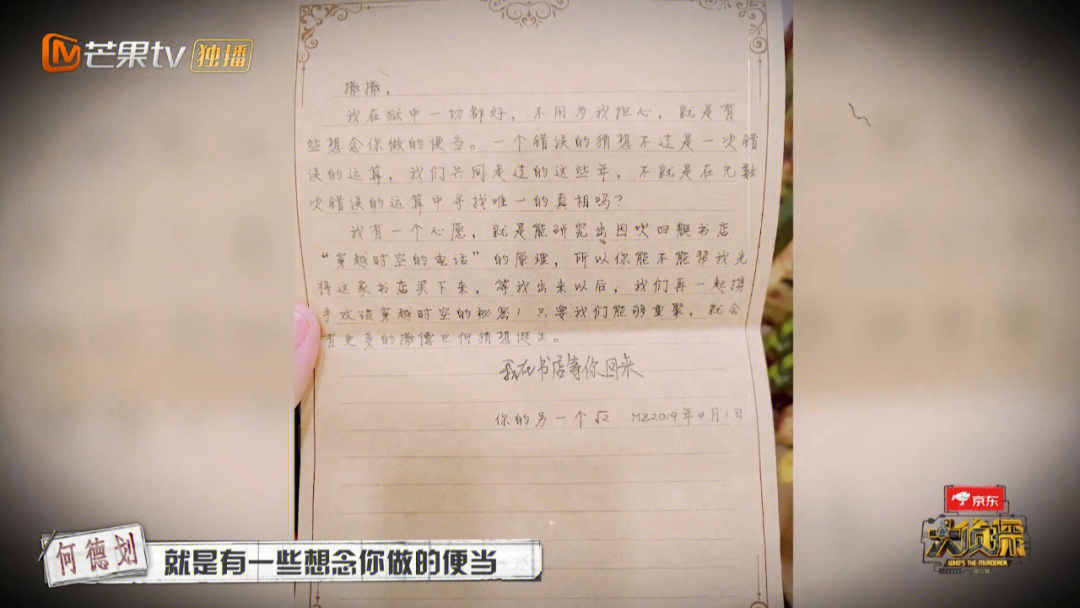 芒果tv 独播
撒撒，
我在狱中一切都好，不用为我担心，就是有
些想念你做的便当。一个错误的猜想不过是一次错
误的运算，我们共同走过的这些年，不就是在无数
次错误的运算中寻找唯一的真相吗？
我有一个心愿，就是能研究出因吹四靓书店
“穿越时空的电话”的原理，所以你能不能帮我先
将这家书店买下来，等我出来以后，我们再一起携
手攻破穿越时空的秘密！只要我们能够重聚，就会
有更多的撒德巴何猜想诞生。
我在书店等你回来
你的另一个√2 MZ2019年4月1日
京东
大侦探
WHO'S THE MURDERER
何德划
就是有一些想念你做的便当